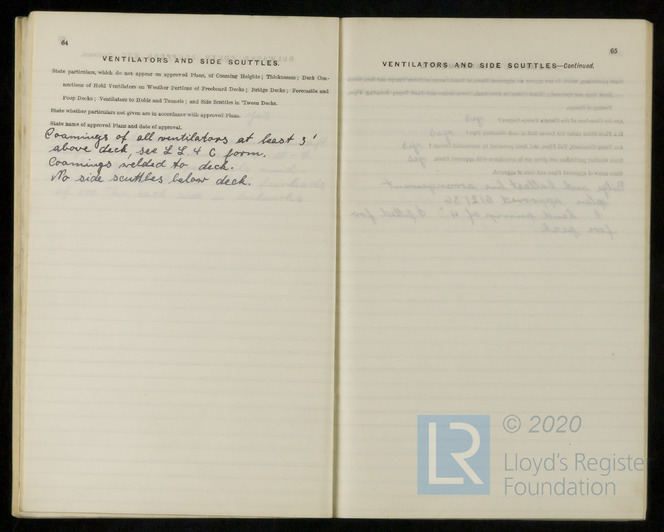 64
VENTILATORS AND SIDE SCUTTLES.
State particulars, which do not appear on approved Plans, of Coaming Heights; Thicknesses; Deck Con-
nections of Hold Ventilators on Weather Portions of Freeboard Decks; Bridge Decks; Forecastle and
Poop Decks; Ventilators to Holds and Tunnels; and Side Scuttles in 'Tween Decks.
State whether particulars not given are in accordance with approved Plans.
State name of approval Plans and date of approval.
Coamings of all ventilators at least 3'
above deck, see L L 4 C form.
Coamings welded to deck.
No side scuttles below deck.
65
VENTILATORS AND SIDE SCUTTLES—Continued.
LR
© 2020
Lloyd's Register
Foundation